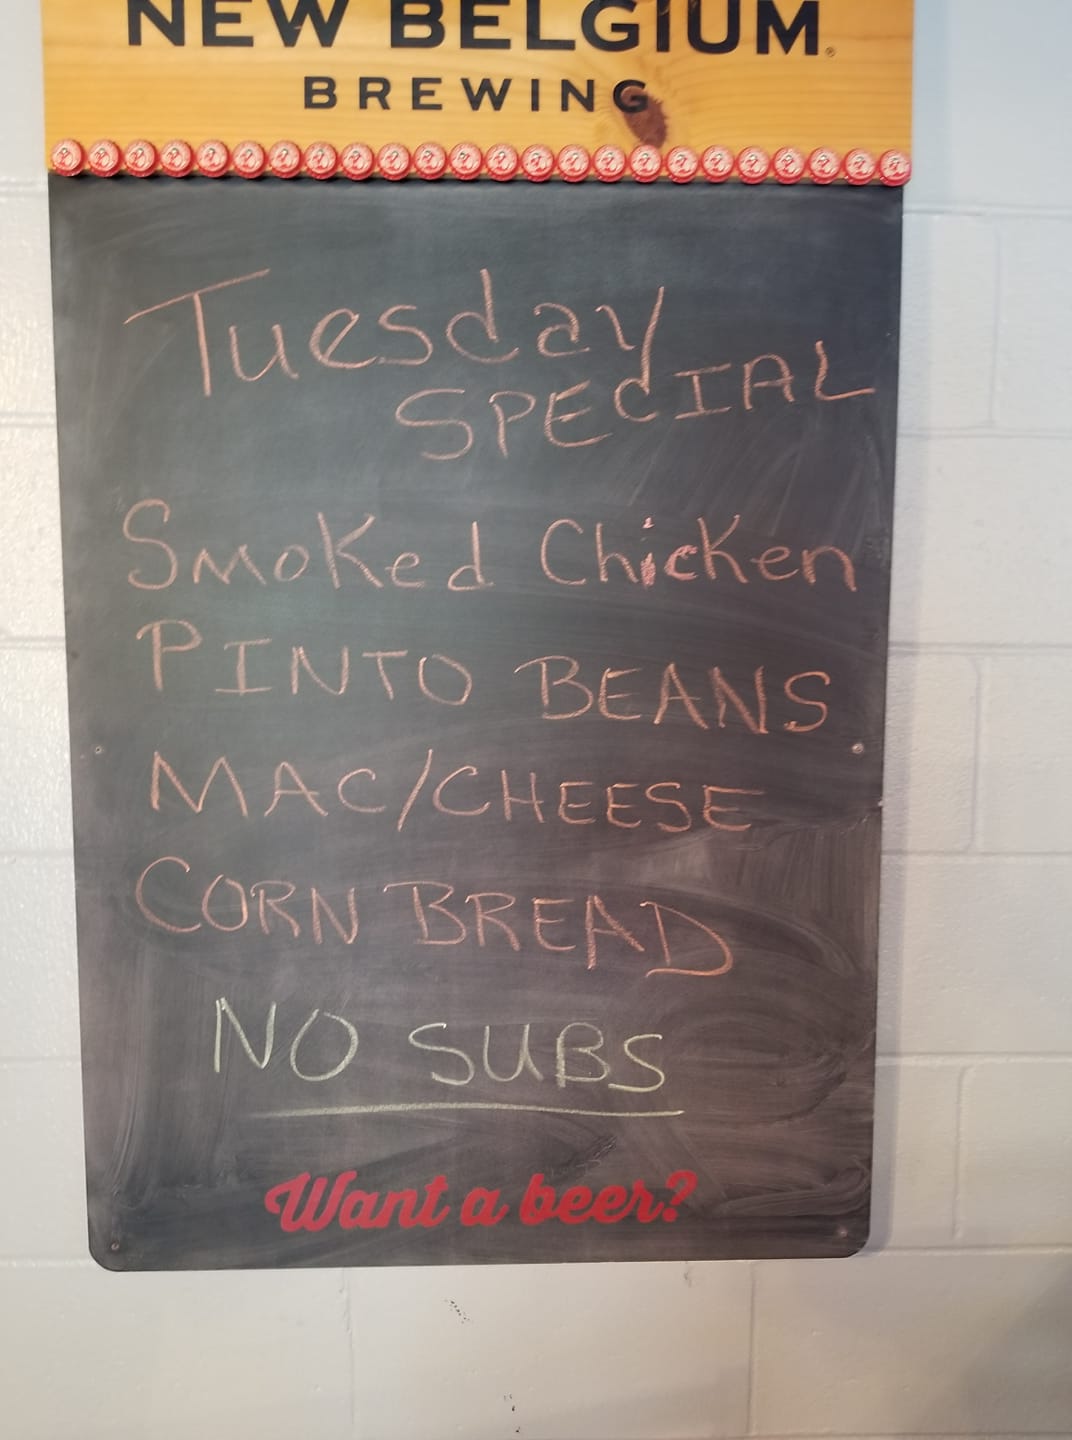 NEW BELGIUM®
BREWING
Tuesday
SPECIAL
Smoked Chicken
PINTO BEANS
MAC/CHEESE
CORN BREAD
NO SUBS
Want a beer?